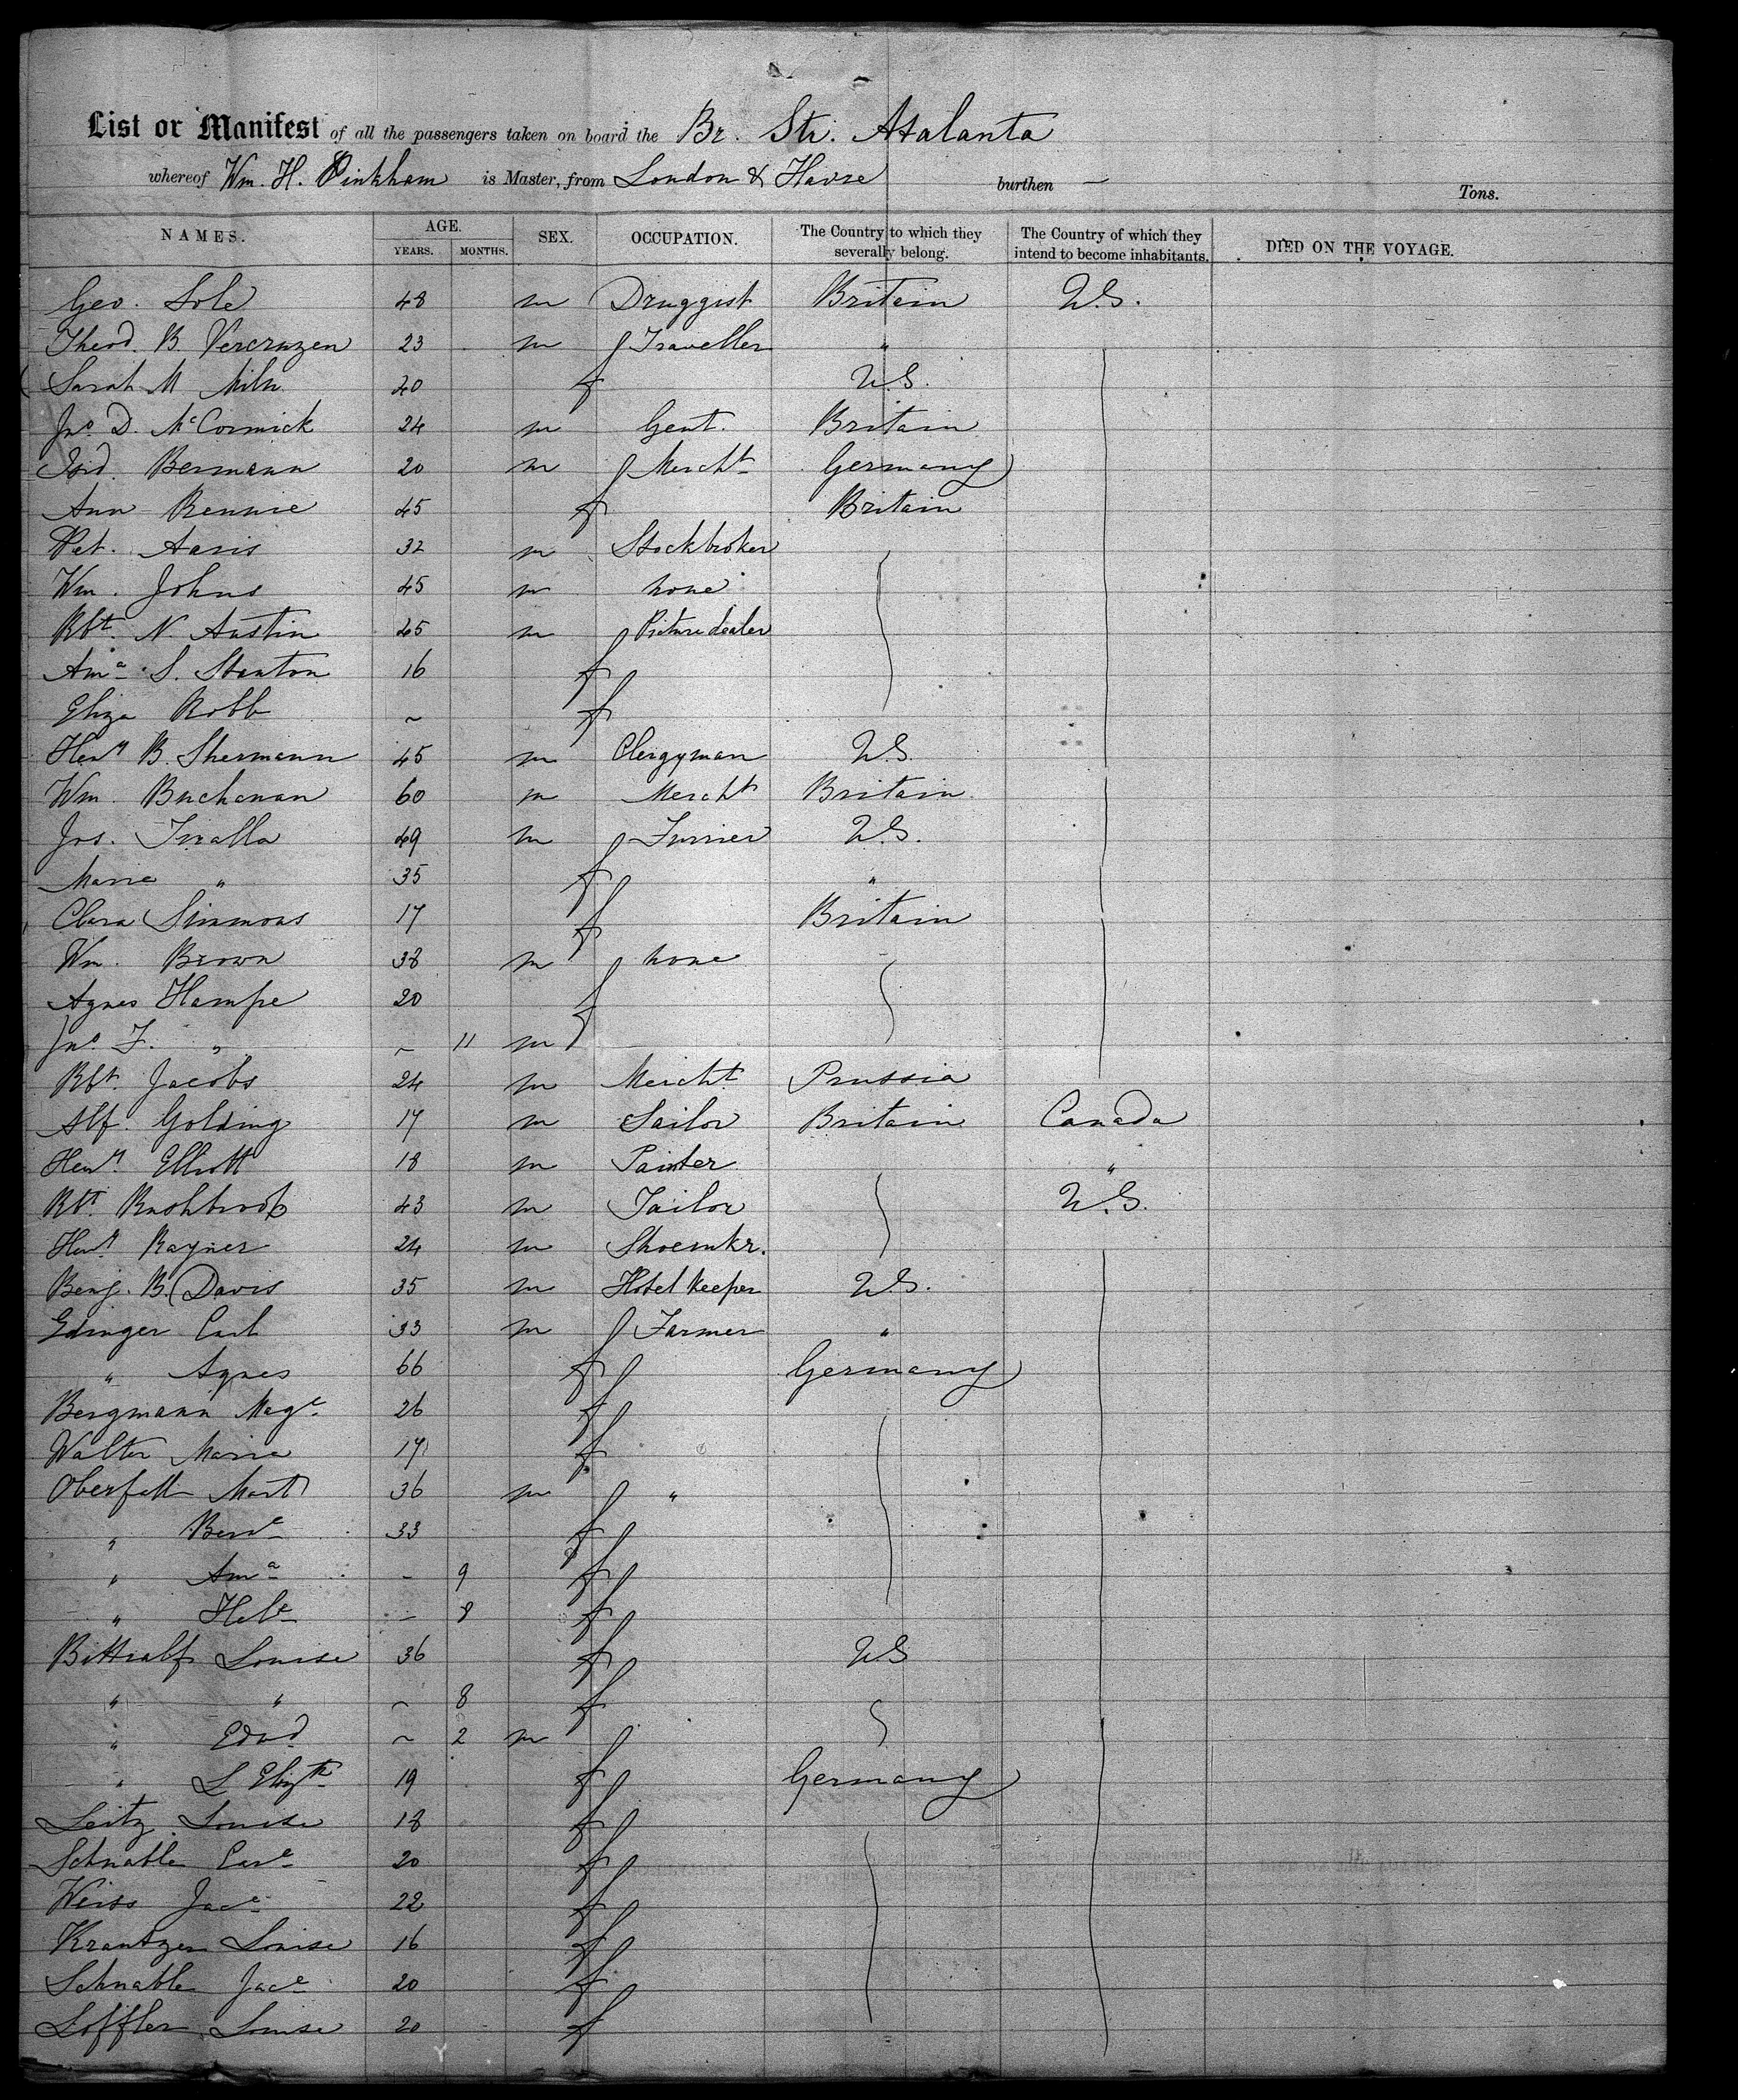 List or Manifest of all the passengers taken on board the Br. Str. Atalanta
whereof Wm. H. Pinkham is Master, from London & Havre burthen — Tons.
NAMES. AGE. SEX. OCCUPATION. The Country to which they severally belong. The Country of which they intend to become inhabitants. DIED ON THE VOYAGE.
YEARS. MONTHS.
Geo. Sole 48 m Druggist Britain U.S.
Theod. B. Vercruzen 23 m Traveller "
Sarah M Miln 20 f U.S.
Jno. D. McCormick 24 m Gent. Britain
Isid. Bermann 20 m Mercht Germany
Ann Rennie 45 f Britain
Pat. Aaris 32 m Stockbroker
Wm. Johns 45 m none
Rbt. N. Austin 45 m Picture dealer
Ama S. Stanton 16 f
Eliza Robb ~ f
Heny B. Shermann 45 m Clergyman U.S.
Wm. Buchanan 60 m Mercht Britain
Jos. 49 m Furrier U.S.
Marie " 35 f "
Clara Simmons 17 f Britain
Wm. Brown 38 m none
Agnes Hampe 20 f
Jno F. " ~ 11 m
Rbt. Jacobs 24 m Mercht Prussia
Alf. Golding 17 m Sailor Britain Canada
Heny. Elliott 18 m Painter "
Rbt. Rushbrook 43 m Tailor U.S.
Heny. Rayner 24 m Shoemkr.
Benj. B. Davis 35 m Hotel Keeper U.S.
Edinger Carl 33 m Farmer "
" Agnes 66 f Germany
Bergmann Mage 26 f
Walter Maria 17 f
Oberfell Mart 36 m "
" Berde 33 f
" Ama - 9 f
" Hele - 8 f
Louise 36 f U.S.
" " ~ 8 f
" Edwd ~ 2 m
" L Elizth 19 f Germany
Leitz Louise 18 f
Schnable Care 20 f
Weiss Jace 22 f
Krantzen Louise 16 f
Schnable Jace 20 f
Loffler Louise 20 f